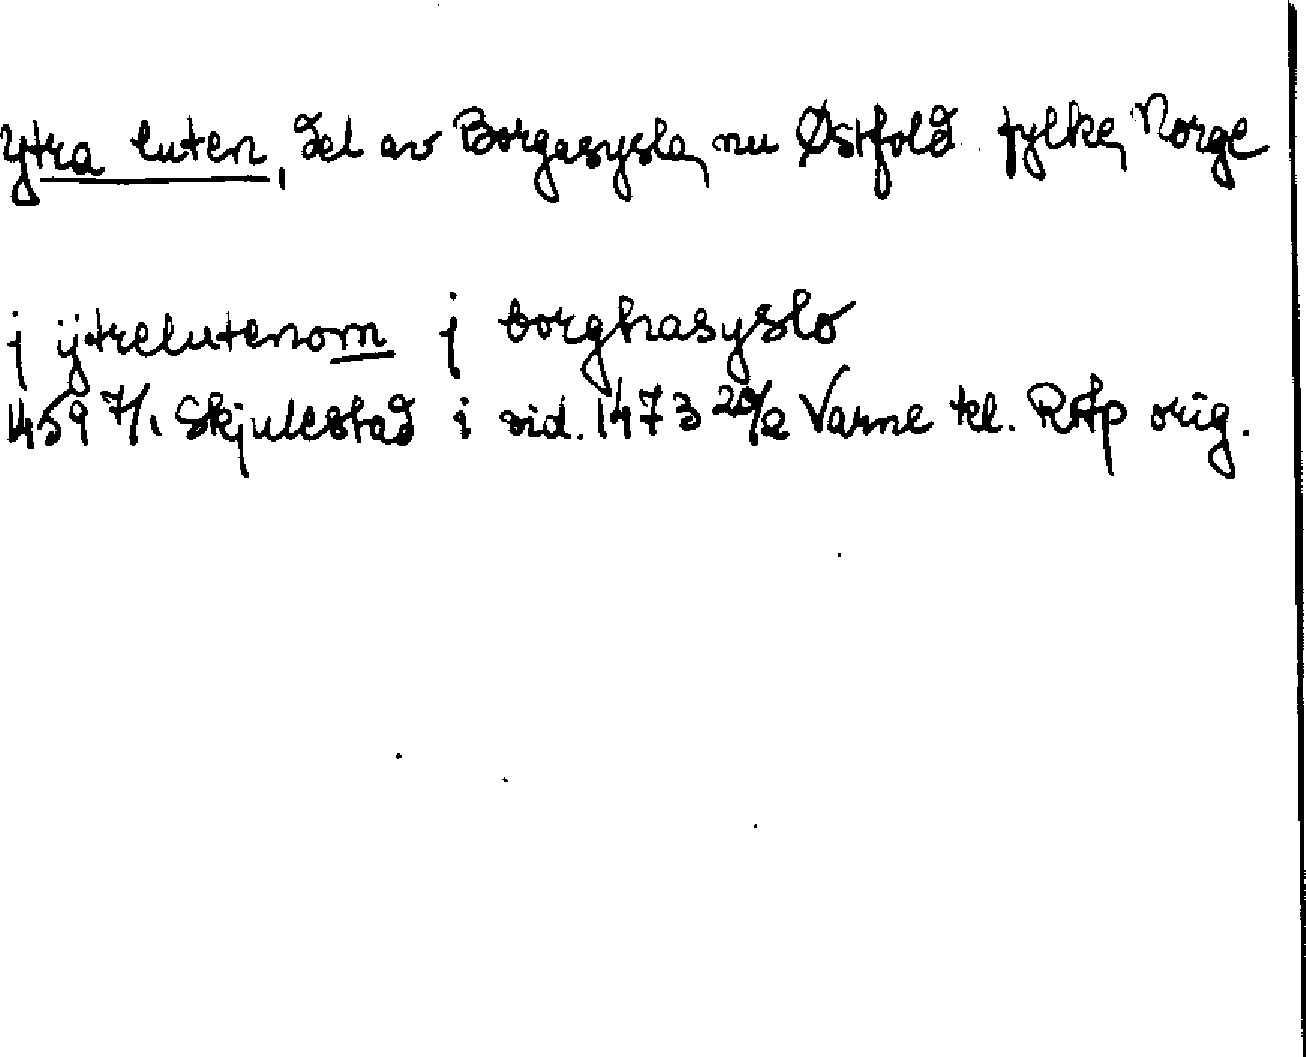 Ytra luten, del av Borgasysla, nu Østfold fylke, Norge
j ÿtrelutenom j borghasyslo
1459 7/1 Skjulestad i vid. 1473 20/2 Varne kl. RAp orig.